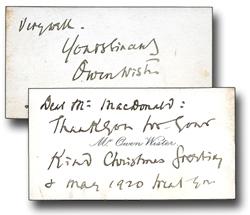 Very well.
Yours sincerely
Owen Wister
Dear Mr. MacDonald:
Thank you for your
Mr. Owen Wister
Kind Christmas Greeting
& may 1920 treat you